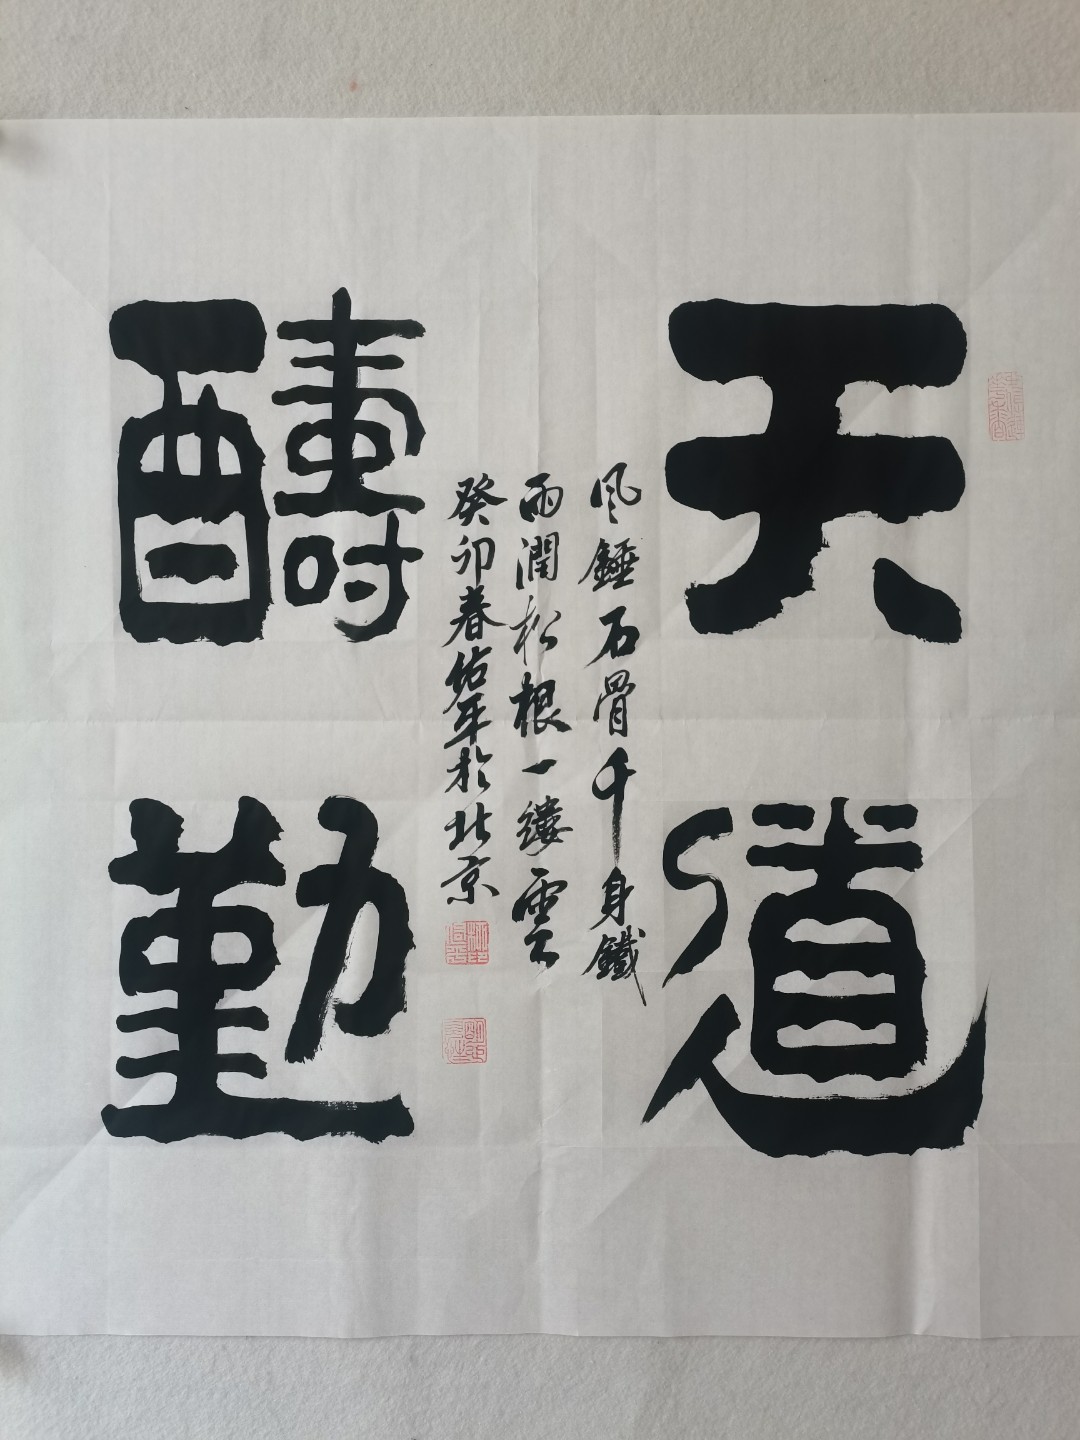 天道
醻勤
風錘石骨千身鐵
雨潤松根一縷雲
癸卯春佑平於北京